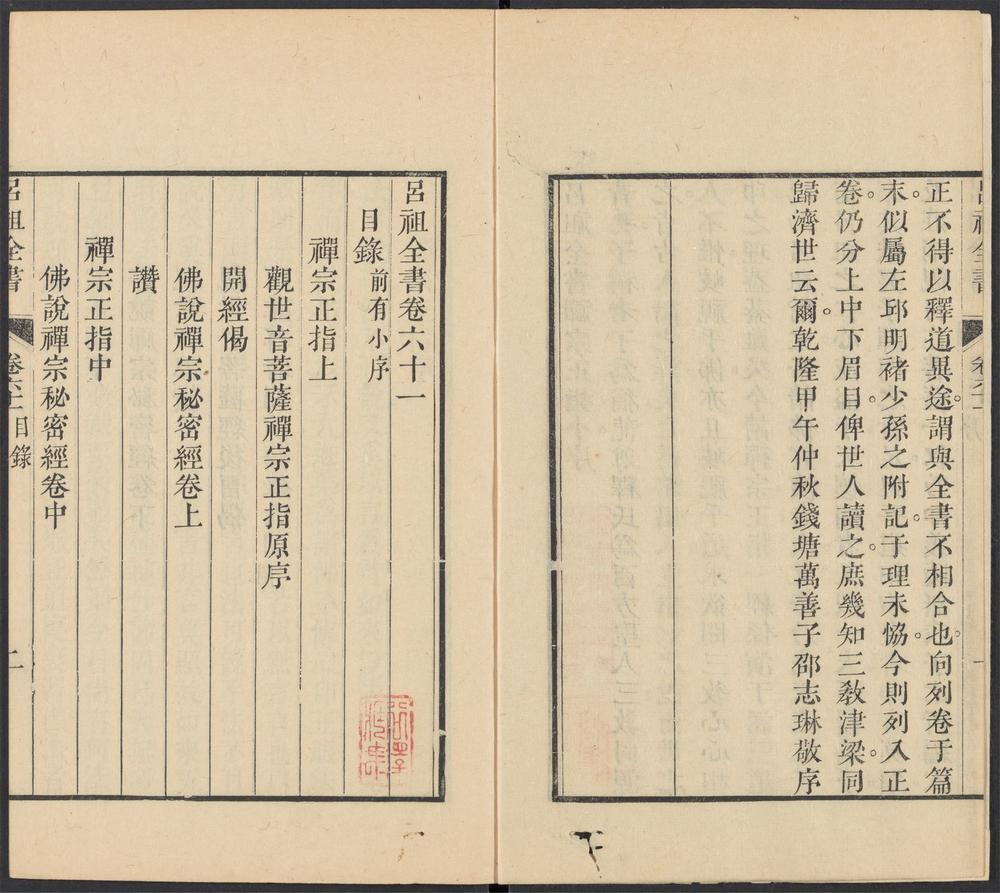 正不得以釋道異途。謂與全書不相合也。向列卷于篇
末。似屬左邱明褚少孫之附記。于理未恊。今則列入正
卷。仍分上中下眉目。俾世人讀之。庶幾知三敎津梁。同
歸濟世云爾。乾隆甲午仲秋錢塘萬善子邵志琳敬序
呂祖全書卷六十一
目錄 前有小序
禪宗正指上
觀世音菩薩禪宗正指原序
開經偈
佛說禪宗秘密經卷上
讚
禪宗正指中
佛說禪宗秘密經卷中
呂祖全書 卷六十一目錄 二